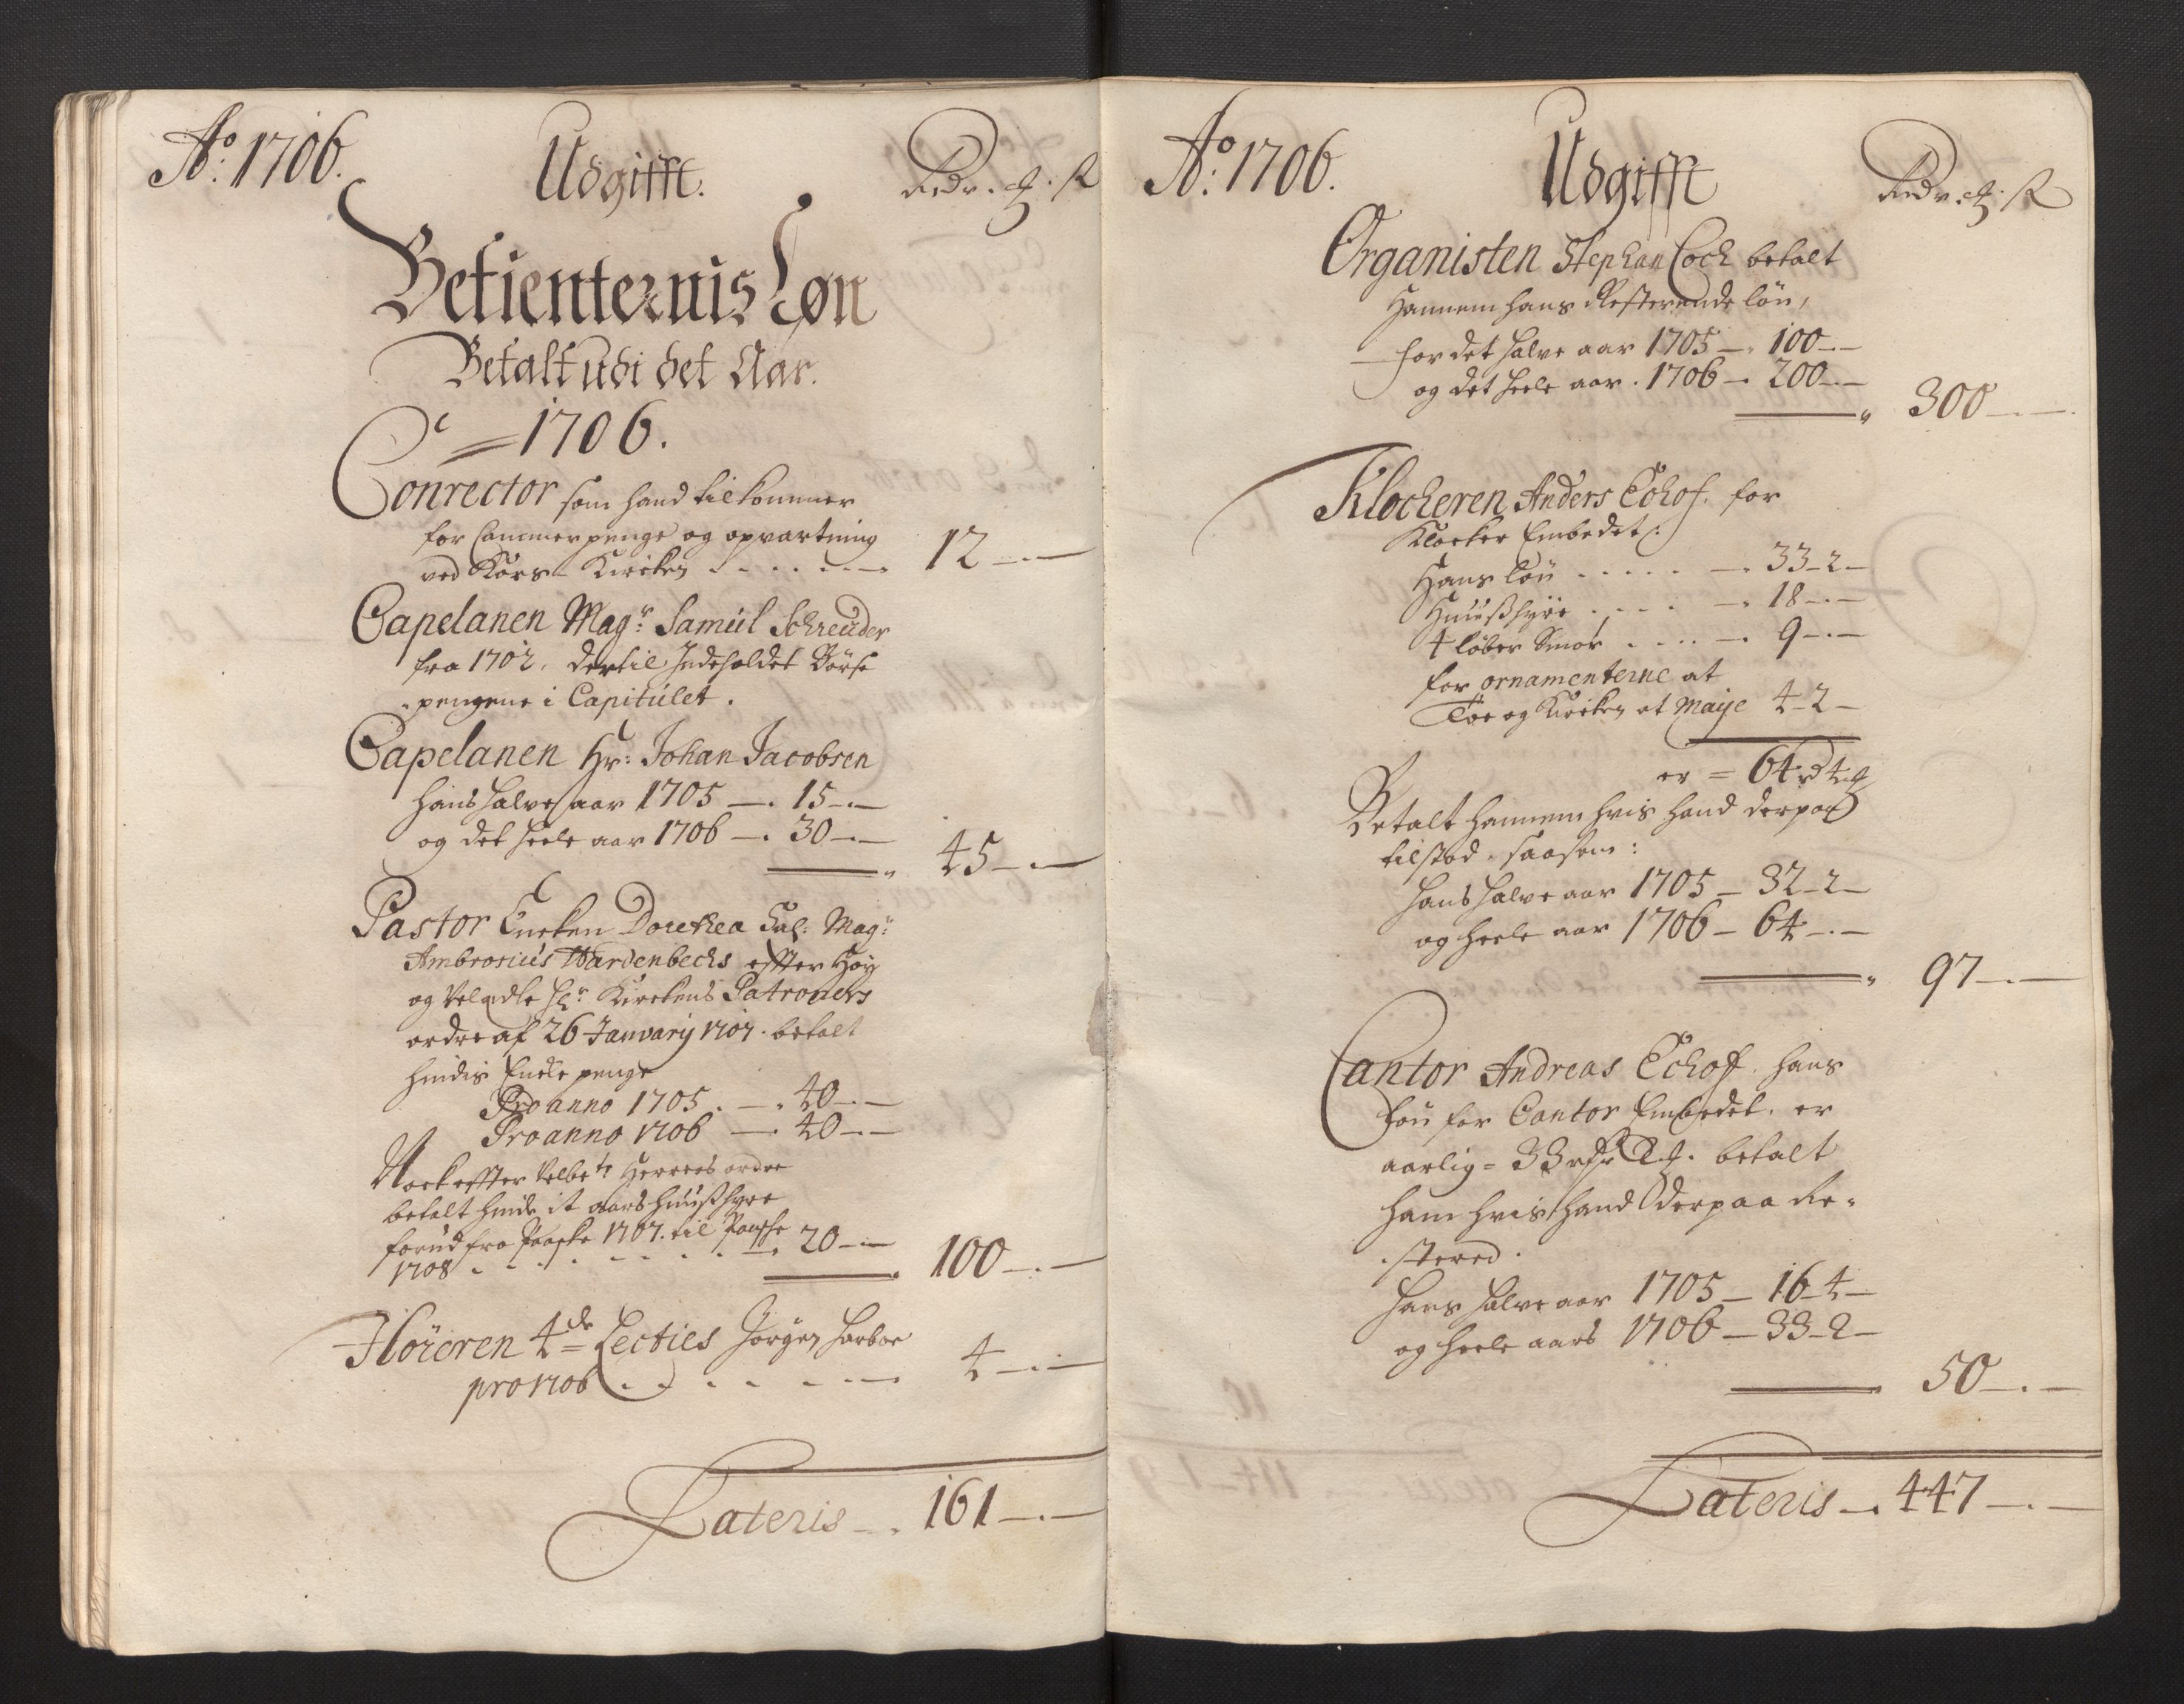 Ao: 1706.
Udgifft.
Rdr. ꝳ. ß
Betienternis Løn
Betalt udi det Aar.
1706.
Conrector som hand tilkommer
for Cammerpenge og opvartning
ved Kors-Kircken - - - - - 12 - . -
Capelanen Magr: Samuel Schreuder
fra 1702. dertil Indeholdet Børse
pengene i Capitulet.
Capelanen Hr: Johan Jacobsen
hans halve aar 1705 - . 15 - . -
og det heele aar 1706 - . 30 - . -
45 - . -
Pastor Encken Dorethea Sal: Magr:
Ambrosius Hardenbechs effter Høy
og Velædle Hr Kirckens Patroners
ordre af 26 Januarij 1707. betalt
hindis Encke penge
Pro anno 1705. - . 40 - . -
Pro anno 1706 - . 40 - . -
Nock effter Velbte Herrers ordre
betalt hinde it aars huusshyre
forud fra Paaske 1707. til Paasche
1708 - - - - - - 20 - . -
100 - . -
Høreren 4de Lecties Jørgen Harboe
pro 1706 - - - - - 4 - . -
Lateris - . 161 - . -
Ao: 1706.
Udgifft
Rdr. ꝳ. ß
Organisten Stephan Coch betalt
Hannem hans Resterende løn,
for det halve aar 1705 - . 100 - . -
og det heele aar . 1706 - . 200 - . -
300 - . -
Klockeren Anders Echof. for
Klocker Embedet:
Hans løn - - - - - . 33 - 2 -
Huusshyre - - - - . 18 - . -
4 løber Smør - - - - . 9 - . -
for ornamenterne at
Toe og Kircken at Maije 4 - 2 -
er = 64 rd 4 ꝳ
Betalt hannem hvis hand derpaa
tilstod. saasom:
hans halve aar 1705 - 32 - 2 -
og heele aar 1706 - 64 - . -
97 - . -
Cantor Andreas Echoff. hans
Løn for Cantor Embedet. er
aarlig = 33 rdr 2 ꝳ. betalt
ham hvis hand derpaa Re-
stered.
hans halve aar 1705 - 16 - 4 -
og heele aars 1706 - 33 - 2 -
50 - . -
Lateris - . 447 - . -